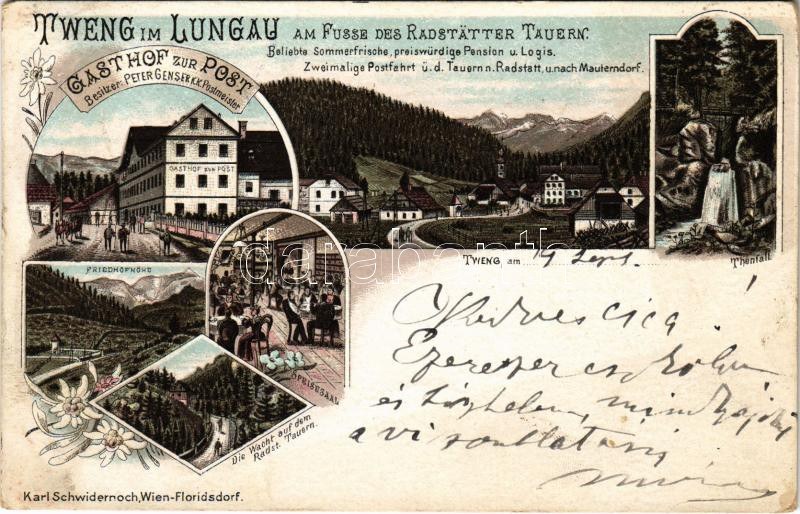 TWENG IM LUNGAU AM FUSSE DES RADSTÄTTER TAUERN.
Beliebte Sommerfrische, preiswürdige Pension u. Logis.
Zweimalige Postfahrt ü. d. Tauern n. Radstatt, u. nach Mauterndorf.
GASTHOF ZUR POST
Besitzer: PETER GENSER K.K. Postmeister
GASTHOF ZUR POST
Thenfall
darabanth
FRIEDHOFHÖHE
TWENG, am 19 Sept.
SPEISESAAL
Die Wacht auf dem
Radst. Tauern.
Kedves Cica!
Ezerszer csókolom
és
a viszontlátásig
Karl Schwidernoch, Wien-Floridsdorf.